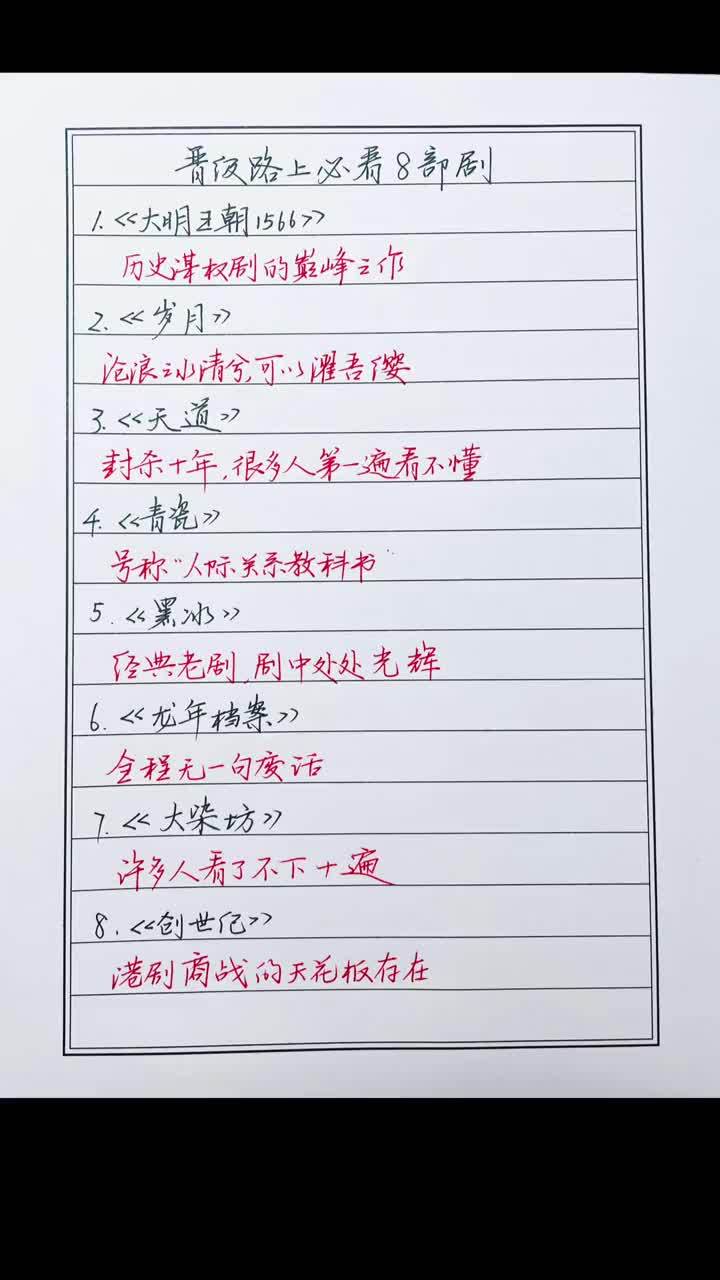 晋级路上必看8部剧
1.<<大明王朝1566>>
历史谋权剧的巅峰之作
2.<<岁月>>
沧浪之水清兮,可以濯吾缨
3.<<天道>>
封杀十年,很多人第一遍看不懂
4.<<青瓷>>
号称"人际关系教科书"
5.<<黑冰>>
经典老剧,剧中处处光辉
6.<<龙年档案>>
全程无一句废话
7.<<大染坊>>
许多人看了不下十遍
8.<<创世纪>>
港剧商战的天花板存在